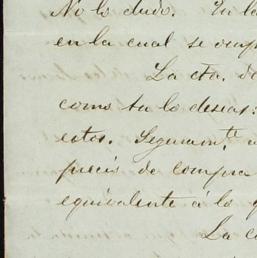 No lo dudo. En la
en la cual se ocup
La cta. de
como tu lo deseas:
estos. Seguramte
precio de compra
equivalente á lo q
La c